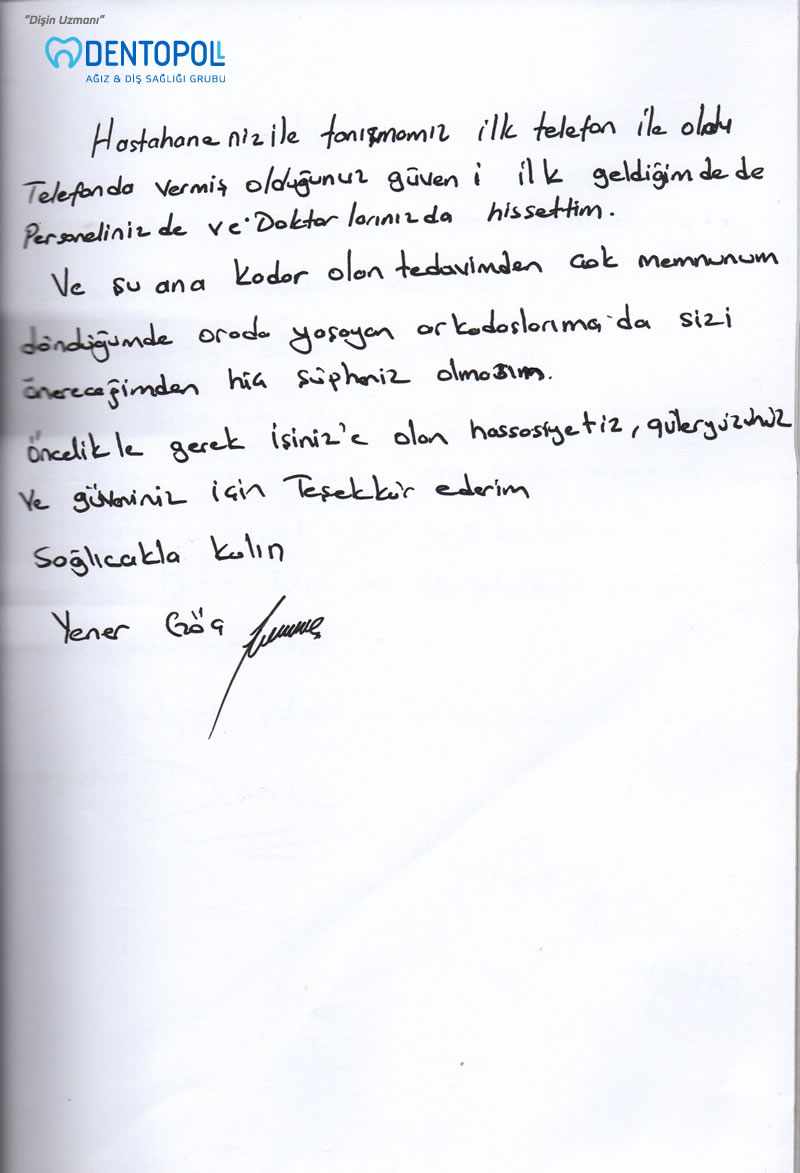 "Dişin Uzmanı"
DENTOPOLL
AĞIZ & DİŞ SAĞLIĞI GRUBU
Hastahaneniz ile tanışmamız ilk telefon ile oldu
Telefonda vermiş olduğunuz güveni ilk geldiğimde de
Personeliniz de ve Doktorlarınızda hissettim.
Ve şu ana kadar olan tedavimden çok memnunum
döndüğümde orada yaşayan arkadaşlarıma da sizi
önereceğimden hiç şüpheniz olmasım.
Öncelikle gerek işiniz'e olan hassasiyetiz, güleryüzünüz
ve güveniniz için Teşekkür ederim
Sağlıcakla kalın
Yener Göç